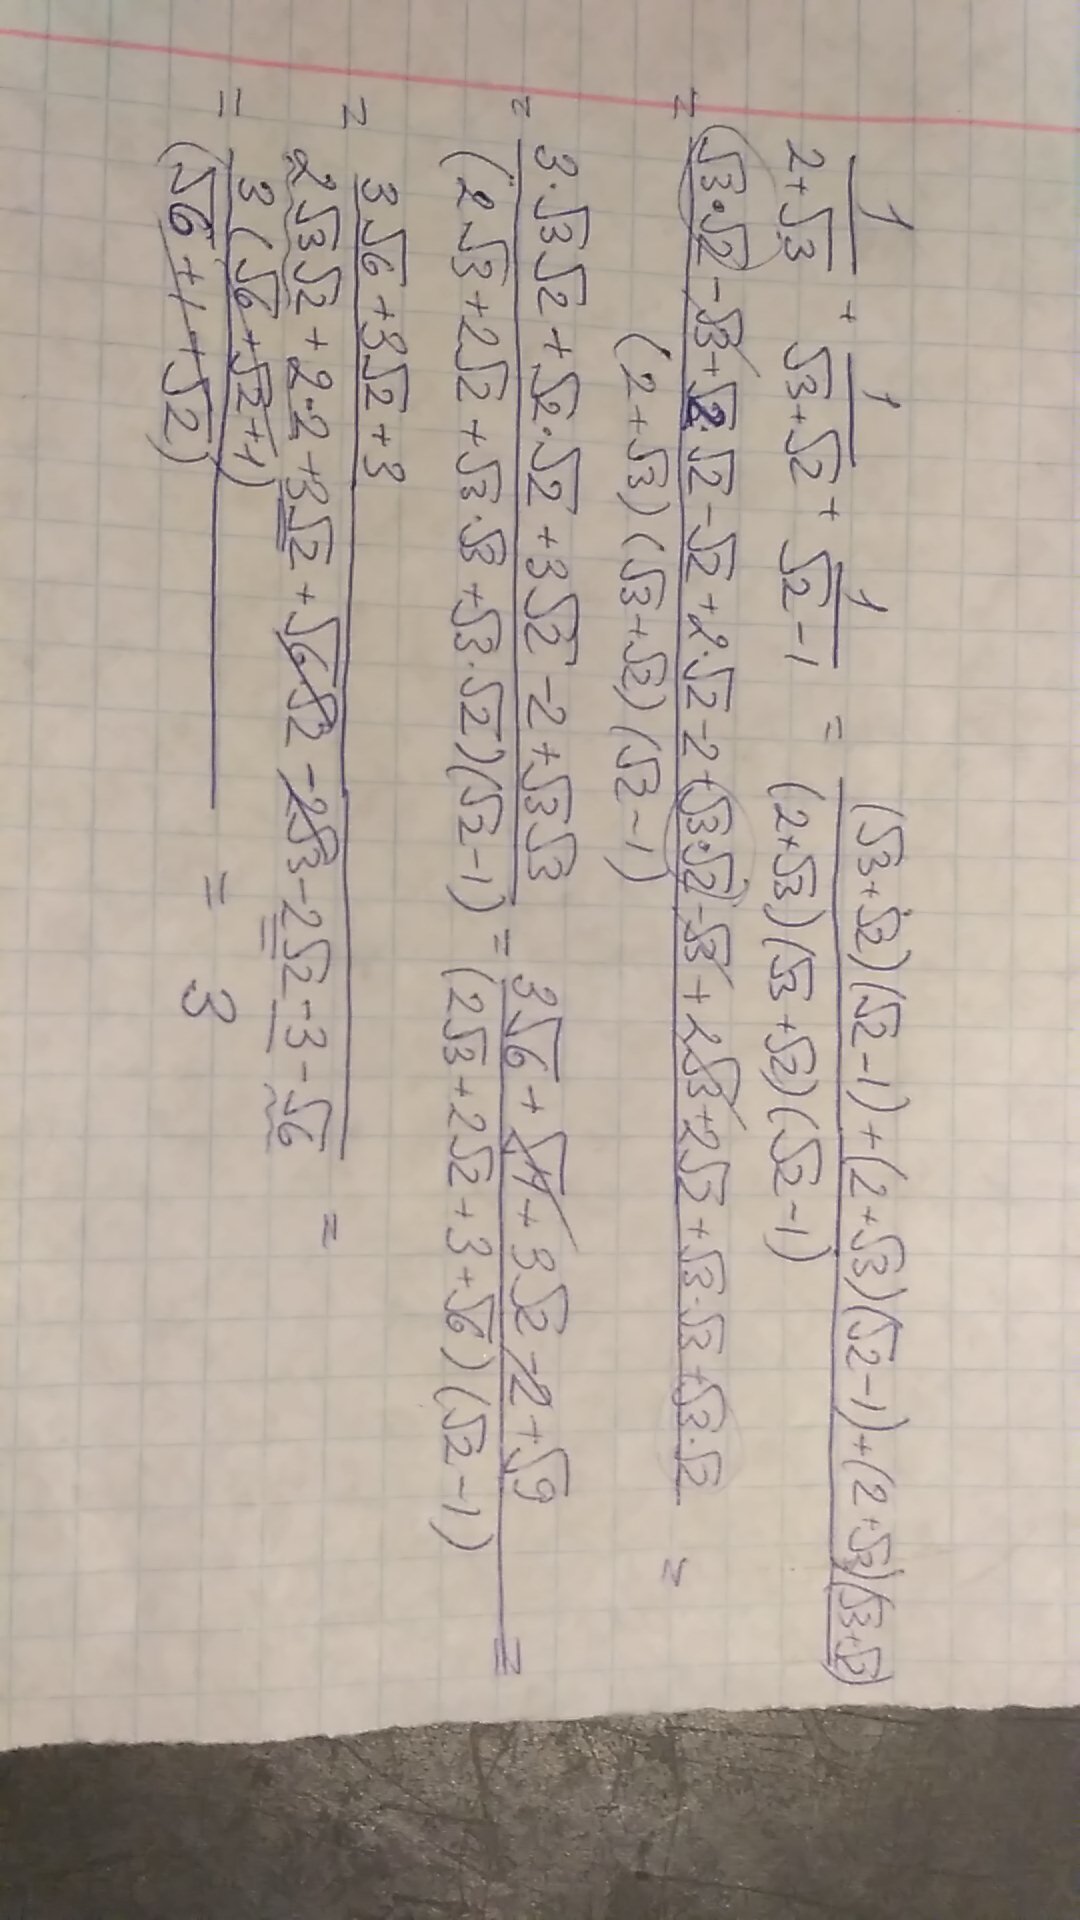 1/(2+√3) + 1/(√3+√2) + 1/(√2-1) = ((√3+√2)(√2-1)+(2+√3)(√2-1)+(2+√3)(√3+√2))/((2+√3)(√3+√2)(√2-1))
= (√3·√2-√3+√2·√2-√2+2·√2-2+√3·√2-√3+2√3+2√2+√3·√3+√3·√2)/((2+√3)(√3+√2)(√2-1)) =
= (3·√3√2+√2·√2+3√2-2+√3√3)/((2·√3+2√2+√3·√3+√3·√2)(√2-1)) = (3√6+√4+3√2-2+√9)/((2√3+2√2+3+√6)(√2-1)) =
= (3√6+3√2+3)/(2√3√2+2·2+3√2+√6√2-2√3-2√2-3-√6) =
= 3(√6+√2+1)/(√6+1+√2) = 3